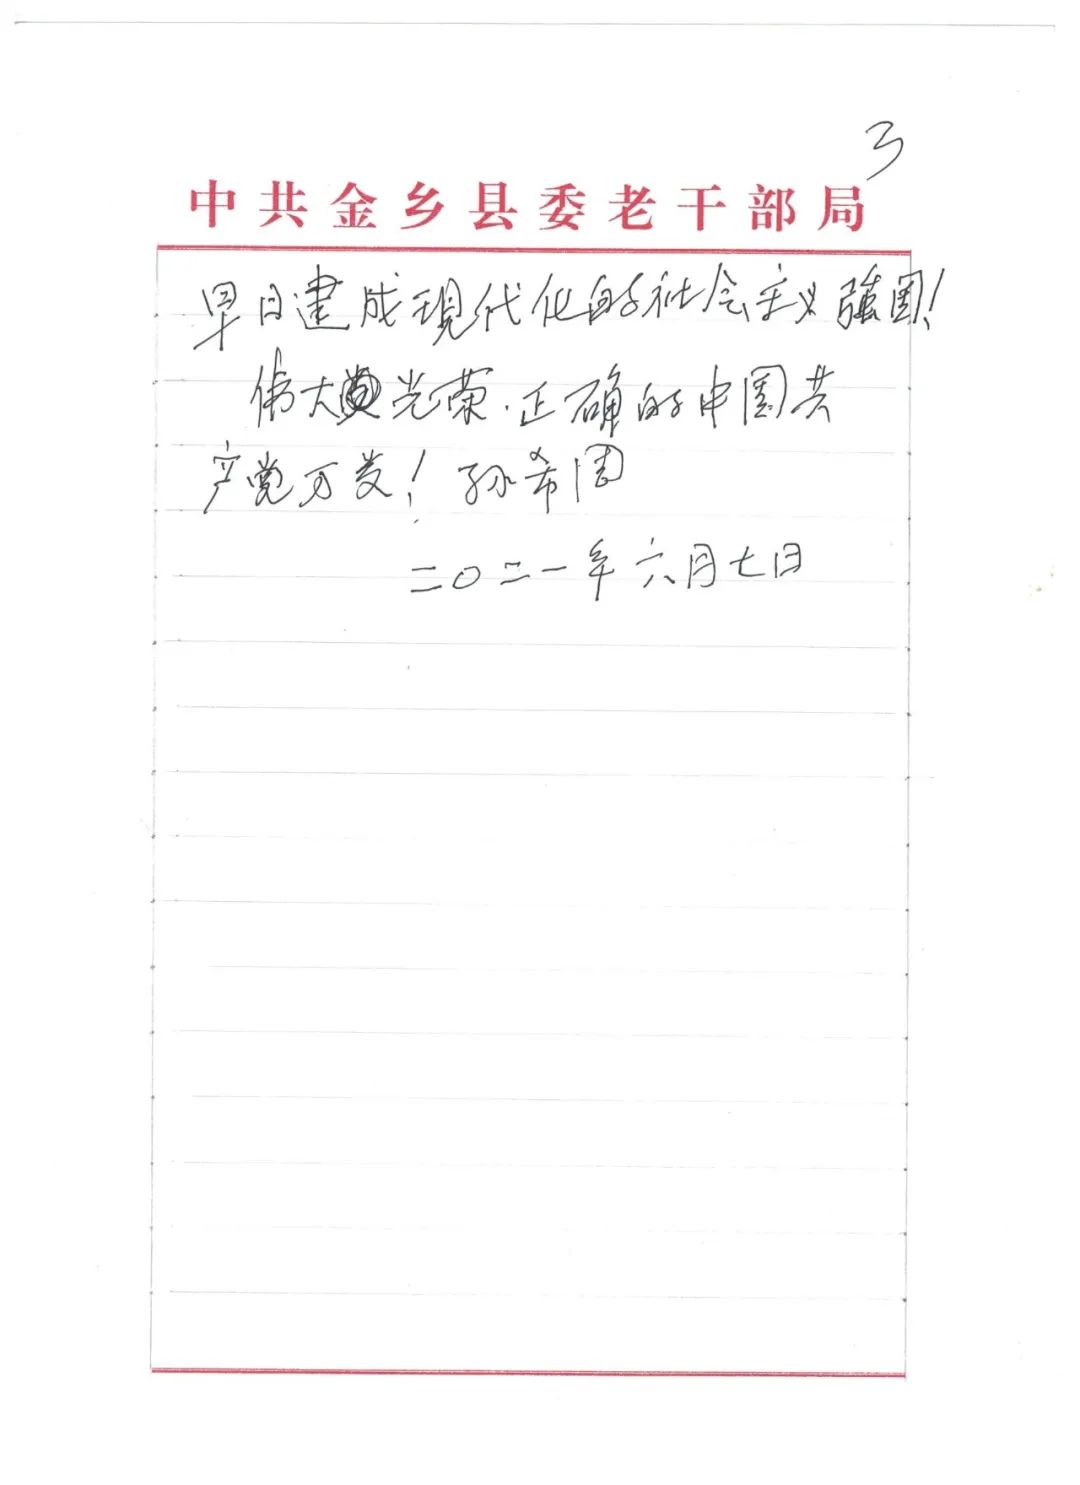 3
中共金乡县委老干部局
早日建成现代化的社会主义强国！
伟大光荣.正确的中国共
产党万岁！孙希周
二〇二一年六月七日